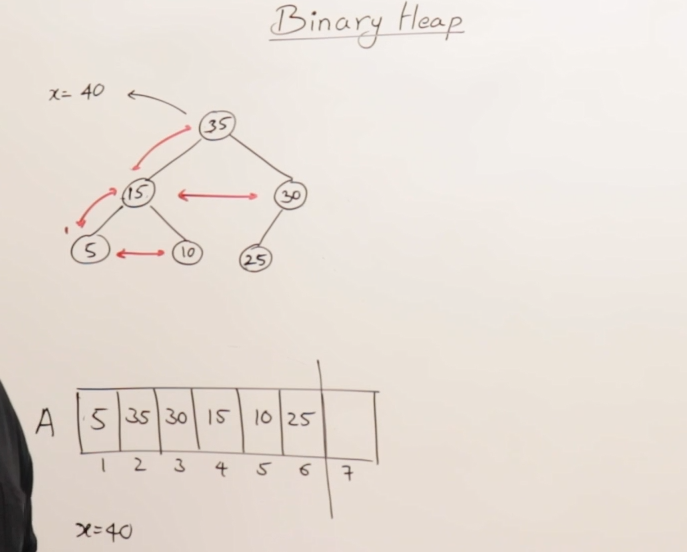 Binary Heap
x= 40
35
15 30
5 10 25
A 5 35 30 15 10 25
1 2 3 4 5 6 7
x=40